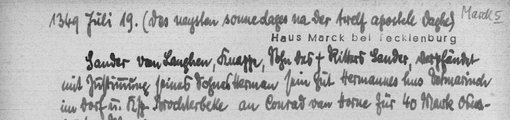 1349 Juli 19. (des neysten sonnedages na der twelf apostele daghe) Marck 5
Haus Marck bei Tecklenburg
Sander van Langhen, Knappe, Sohn des † Ritters Sander, verpfändet
mit Zustimmung seines Sohnes Herman sein Gut Hermannes hus
im Dorf u. Ksp. Brochterbeke an Conrad van Horne für 40 Mark